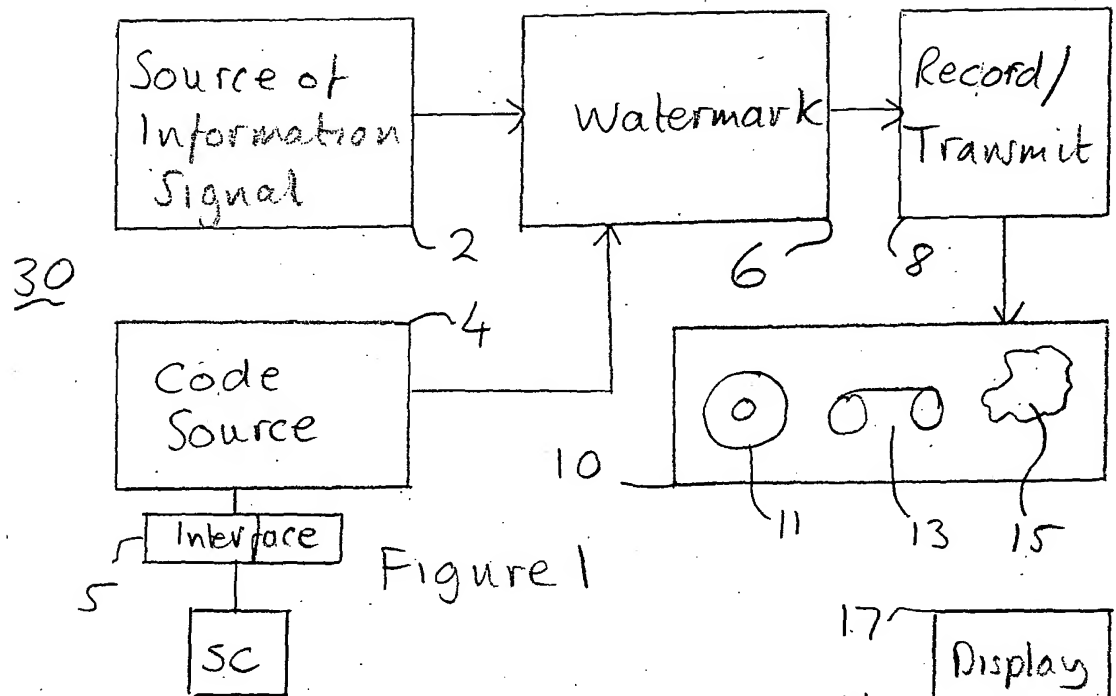 Source of
Information
Signal
Watermark
Record/
Transmit
2
6
8
30
4
Code
Source
10
11
13
15
5
Interface
Figure 1
SC
17
Display